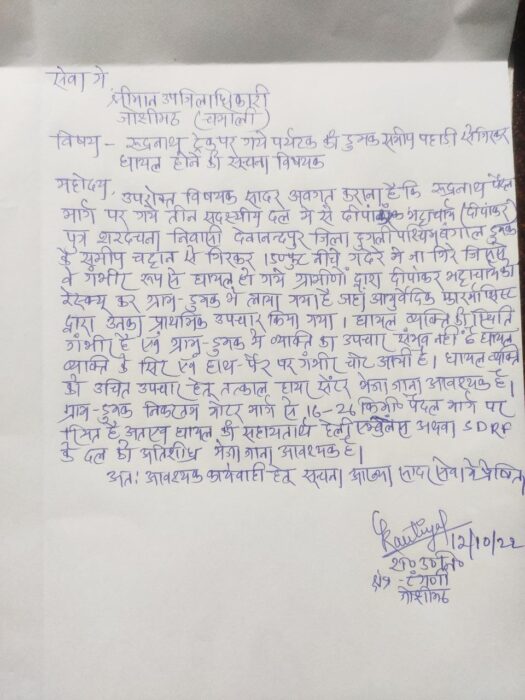 सेवा मे
श्रीमान उपजिलाधिकारी
जोशीमठ (चमोली)
विषय - रूद्रनाथ ट्रेक पर गये पर्यटक की डुमक समीप पहाडी से गिरकर
घायल होने की सूचना विषयक
महोदय,
उपरोक्त विषयक सादर अवगत कराना है कि रूद्रनाथ पैदल
मार्ग पर गये तीन सदस्यीय दल मे से दीपांकुक भट्टाचार्य (दीपांकर)
पुत्र शरदचन्ता निवासी देवानन्दपुर जिला हुगली पश्चिम बंगाल डुमक
के समीप चट्टान से गिरकर 150 फुट नीचे गदेरे मे जा गिरे जिससे
वे गंभीर रूप से घायल हो गये ग्रामीणों द्वारा दीपांकर भट्टाचार्य का
रेस्क्यू कर ग्राम-डुमक मे लाया गया है जहां आयुर्वेदिक फार्मासिस्ट
द्वारा उनका प्राथमिक उपचार किया गया । घायल व्यक्ति की स्थिति
गंभीर है एवं ग्राम-डुमक मे व्यक्ति का उपचार संभव नहीं है घायल
व्यक्ति के सिर एवं हाथ-पैर पर गंभीर चोट आयी है। घायल व्यक्ति
को उचित उपचार हेतु तत्काल हायर सेंटर भेजा जाना आवश्यक है।
ग्राम-डुमक निकटतम मोटर मार्ग से 16-26 किमी० पैदल मार्ग पर
स्थित है अतएव घायल की सहायतार्थ हेली एम्बुलेंस अथवा SDRF
के दल को अतिशीघ्र भेजा जाना आवश्यक है।
अतः आवश्यक कार्यवाही हेतु सूचना आख्या सादर सेवा मे प्रेषित
12/10/22
रा०उ०नि०
क्षेत्र - टंगणी
जोशीमठ